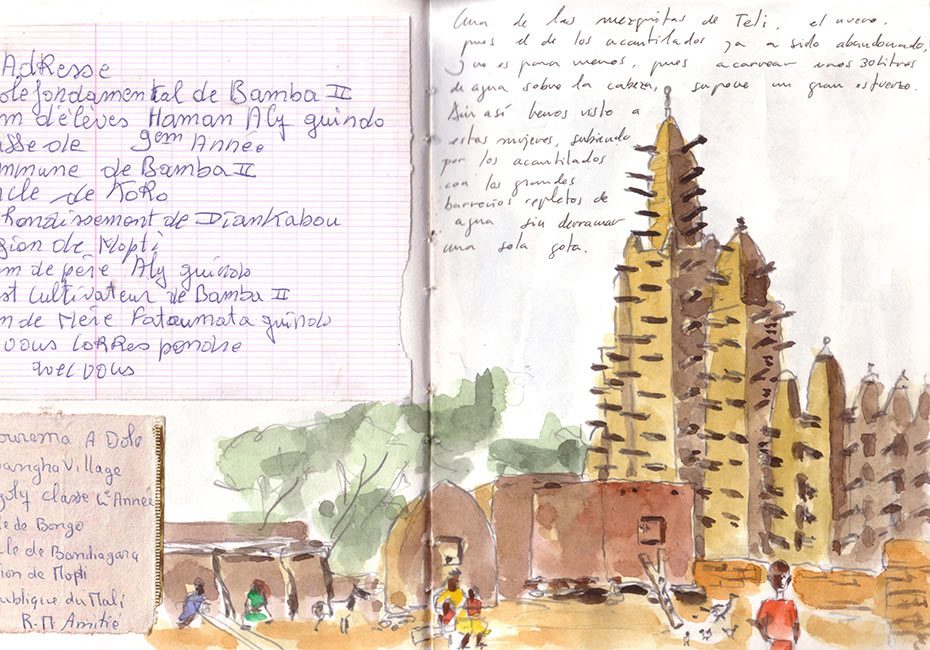 Adresse
ole fondamental de Bamba II
m d'élèves Haman Aly guindo
sse de 9em Année
mmune de Bamba II
cle de Koro
rhondissement de Diankabou
gion de Mopti
m de père Aly guindo
st cultivateur de Bamba II
m de Mère Fatoumata guindo
vous corresponche
avec vous
ourema A Dolo
angha Village
goly classe Année
le de Bongo
cle de Bandiagara
ion de Mopti
ublique du Mali
R.M Amitié
Una de las mezquitas de Teli, el nuevo,
pues el de los acantilados ya a sido abandonado,
y no es para menos, pues acarrear unos 30 litros
de agua sobre la cabeza, supone un gran esfuerzo.
Aún así hemos visto a
estas mujeres, subiendo
por los acantilados
con los grandes
barreños repletos de
agua sin derramar
una sola gota.